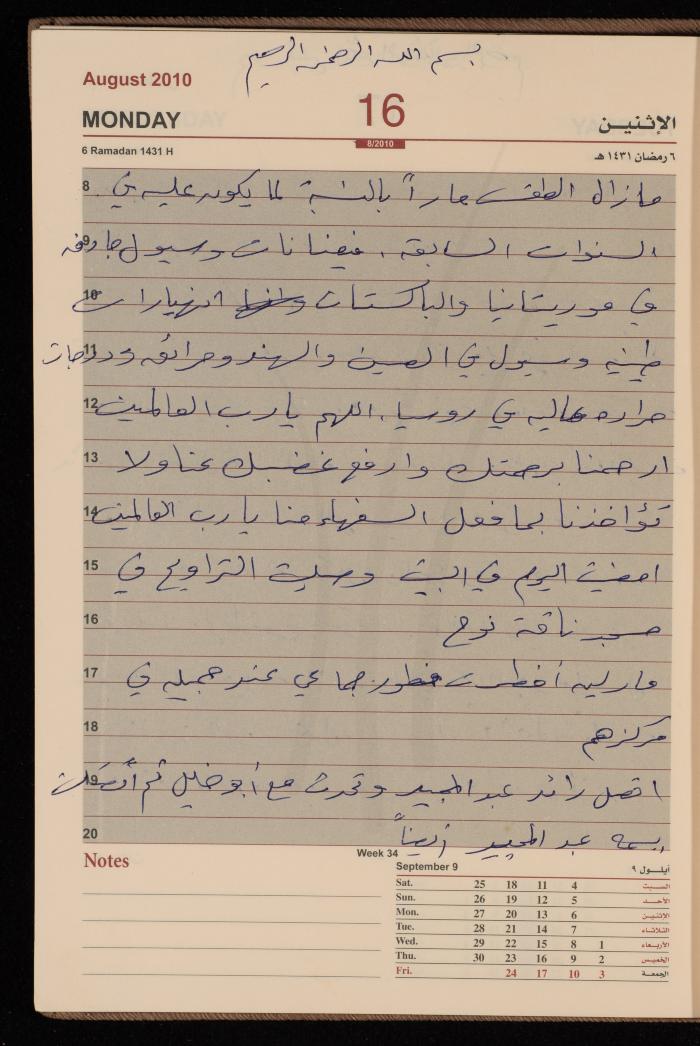 بسم الله الرحمن الرحيم
August 2010
MONDAY 16 الإثنين
6 Ramadan 1431 H 8/2010 ٦ رمضان ١٤٣١ هـ
8 مازال الطقس حاراً بالنسبة لما يكون عليه في
9 السنوات السابقة . فيضانات وسيول جارفه
10 في موريتانيا والباكستان انهيارات
11 طينيه وسيول في الصين والهند وحرائق ودرجات
12 حراره عاليه في روسيا . اللهم يارب العالمين
13 ارحمنا برحمتك وارفع غضبك عنا ولا
14 تؤاخذنا بما فعل السفهاء منا يا رب العالمين
15 امضيت اليوم في البيت وصليت التراويح في
16 مسجد ناقة نوح
17 مارليه أفطرت فطور جماعي عند جميله في
18 مركزهم
19 اتصل رائد عبد المجيد وتحدث مع أبو خليل ثم
20 عبد المجيد أيضاً
Notes
Week 34
September 9 أيلول ٩
Sat. 25 18 11 4 السبت
Sun. 26 19 12 5 الأحد
Mon. 27 20 13 6 الاثنين
Tue. 28 21 14 7 الثلاثاء
Wed. 29 22 15 8 1 الأربعاء
Thu. 30 23 16 9 2 الخميس
Fri. 24 17 10 3 الجمعة